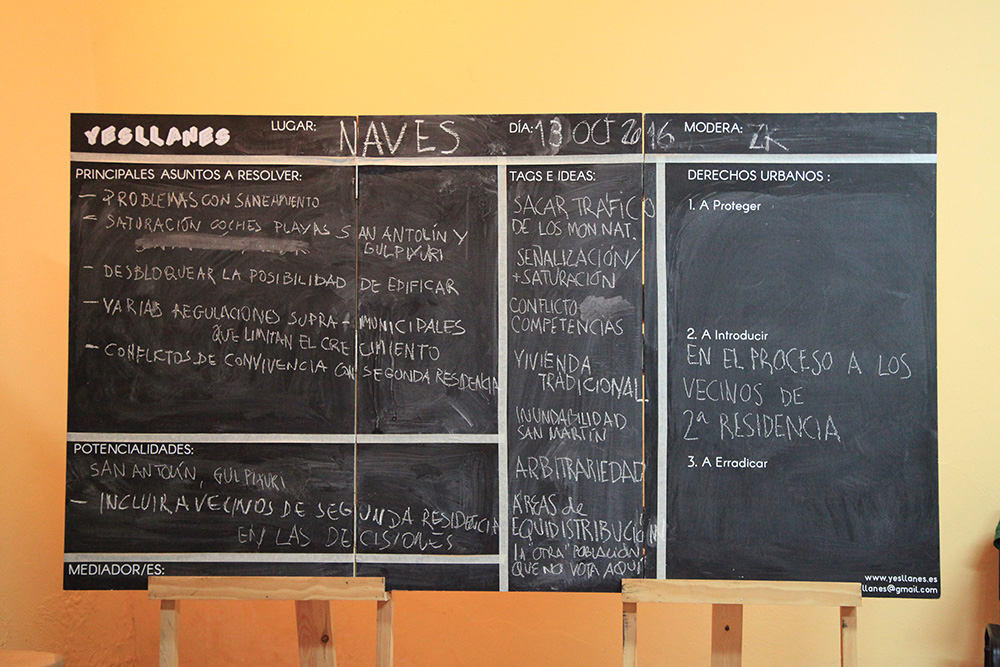 YESLLANES
LUGAR: NAVES
DÍA: 13 OCT 2016
MODERA: ZK
PRINCIPALES ASUNTOS A RESOLVER:
- PROBLEMAS CON SANEAMIENTO
- SATURACIÓN COCHES PLAYAS SAN ANTOLÍN Y
GULPIYURI
- DESBLOQUEAR LA POSIBILIDAD DE EDIFICAR
- VARIAS REGULACIONES SUPRA-MUNICIPALES
QUE LIMITAN EL CRECIMIENTO
- CONFLICTOS DE CONVIVENCIA CON SEGUNDA RESIDENCIA
POTENCIALIDADES:
SAN ANTOLÍN, GULPIYURI
- INCLUIR A VECINOS DE SEGUNDA RESIDENCIA
EN LAS DECISIONES
MEDIADOR/ES:
TAGS E IDEAS:
SACAR TRAFICO
DE LOS MON NAT.
SEÑALIZACIÓN/
+SATURACIÓN
CONFLICTO
COMPETENCIAS
VIVIENDA
TRADICIONAL
INUNDABILIDAD
SAN MARTÍN
ARBITRARIEDAD
ÁREAS de
EQUIDISTRIBUCIÓN
la "OTRA" POBLACIÓN
QUE NO VOTA AQUÍ
DERECHOS URBANOS :
1. A Proteger
2. A Introducir
EN EL PROCESO A LOS
VECINOS DE
2ª RESIDENCIA
3. A Erradicar
www.yesllanes.es
llanes@gmail.com